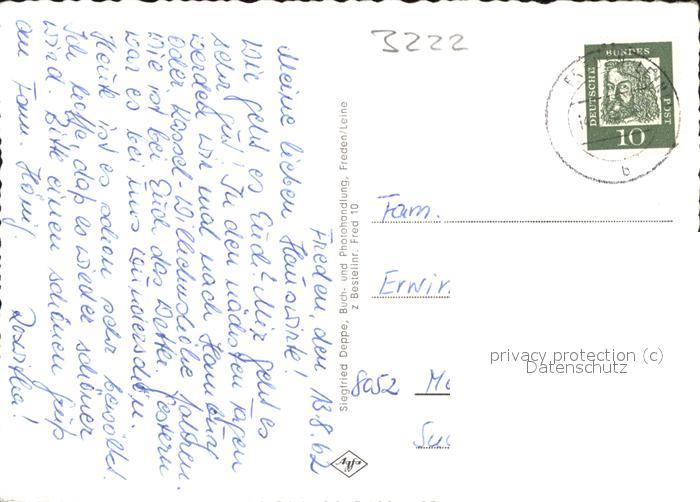 3222
DEUTSCHE BUNDES POST
10
b
Freden, den 13.8.62
Meine lieben Hauswirte!
Wie geht es Euch? Mir geht es
sehr gut! In den nächsten Tagen
werden wir mal nach Hamburg
oder Kassel-Wilhelmshöhe fahren.
Wie ist bei Euch das Wetter. Gestern
war es bei uns wunderschön.
Heute ist es schon sehr bewölkt.
Ich hoffe, daß es wieder schöner
wird. Bitte einen schönen Gruß
an Fam. König. Dorothea!
Siegfried Deppe, Buch- und Photohandlung, Freden/Leine
z Bestellnr. Fred 10
Agfa
Fam.
Erwin
8052 Mo
privacy protection (c)
Datenschutz